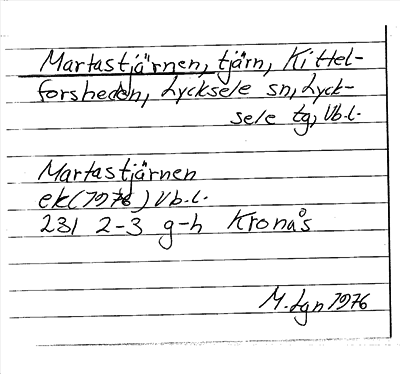 Martastjärnen, tjärn, Kittel-
forsheden, Lycksele sn, Lyck-
sele tg, Vb.l.
Martastjärnen
ek (1976) Vb.l.
231 2-3 g-h Kronås
M. Lgn 1976